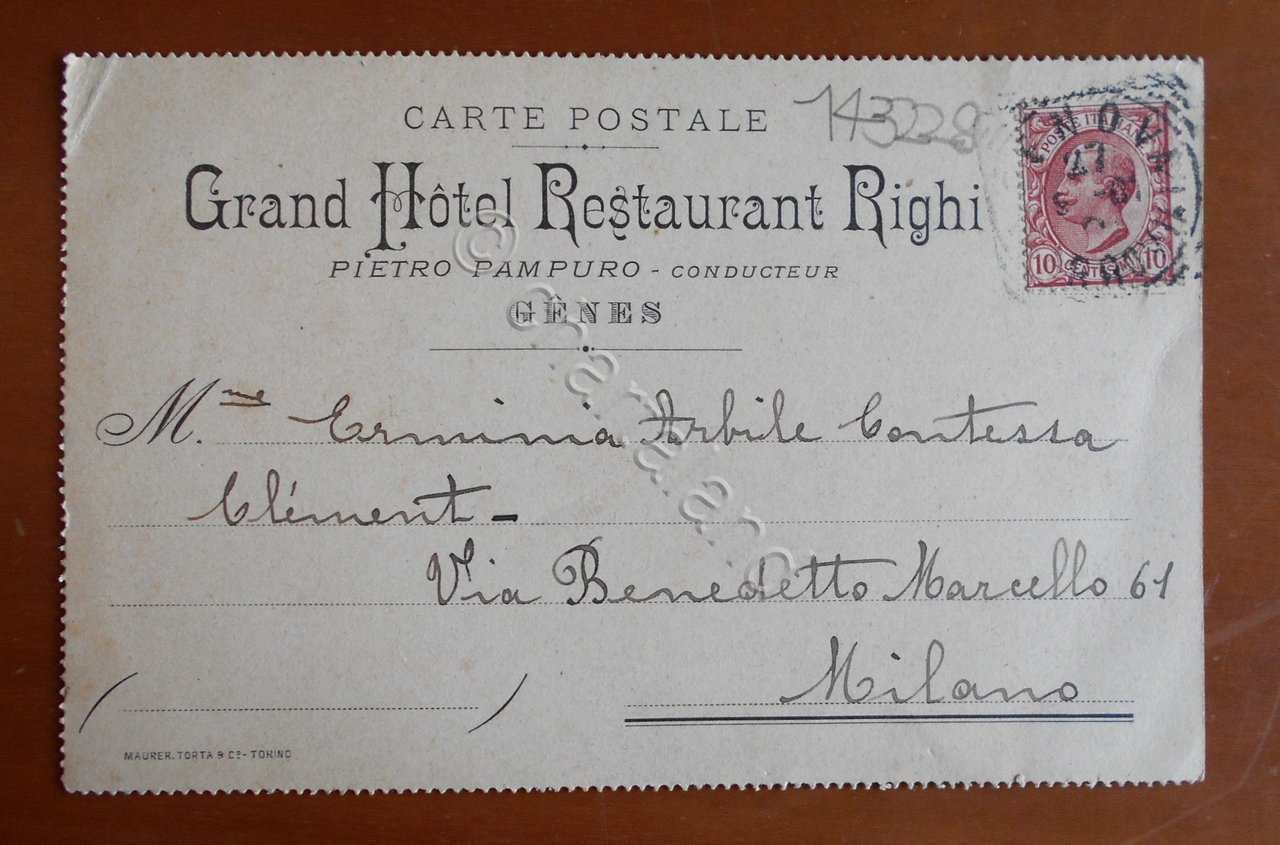 CARTE POSTALE
143228
Grand Hôtel Restaurant Righi
PIETRO PAMPURO - CONDUCTEUR
GÊNES
POSTE ITALIANE
10 CENTESIMI 10
M.me Erminia Arbile Contessa
Clément -
Via Benedetto Marcello 61
Milano
( )
MAURER, TORTA & Cº - TORINO